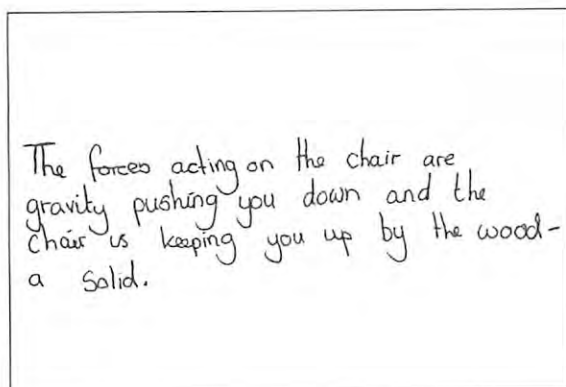 The forces acting on the chair are
gravity pushing you down and the
chair is keeping you up by the wood-
a solid.